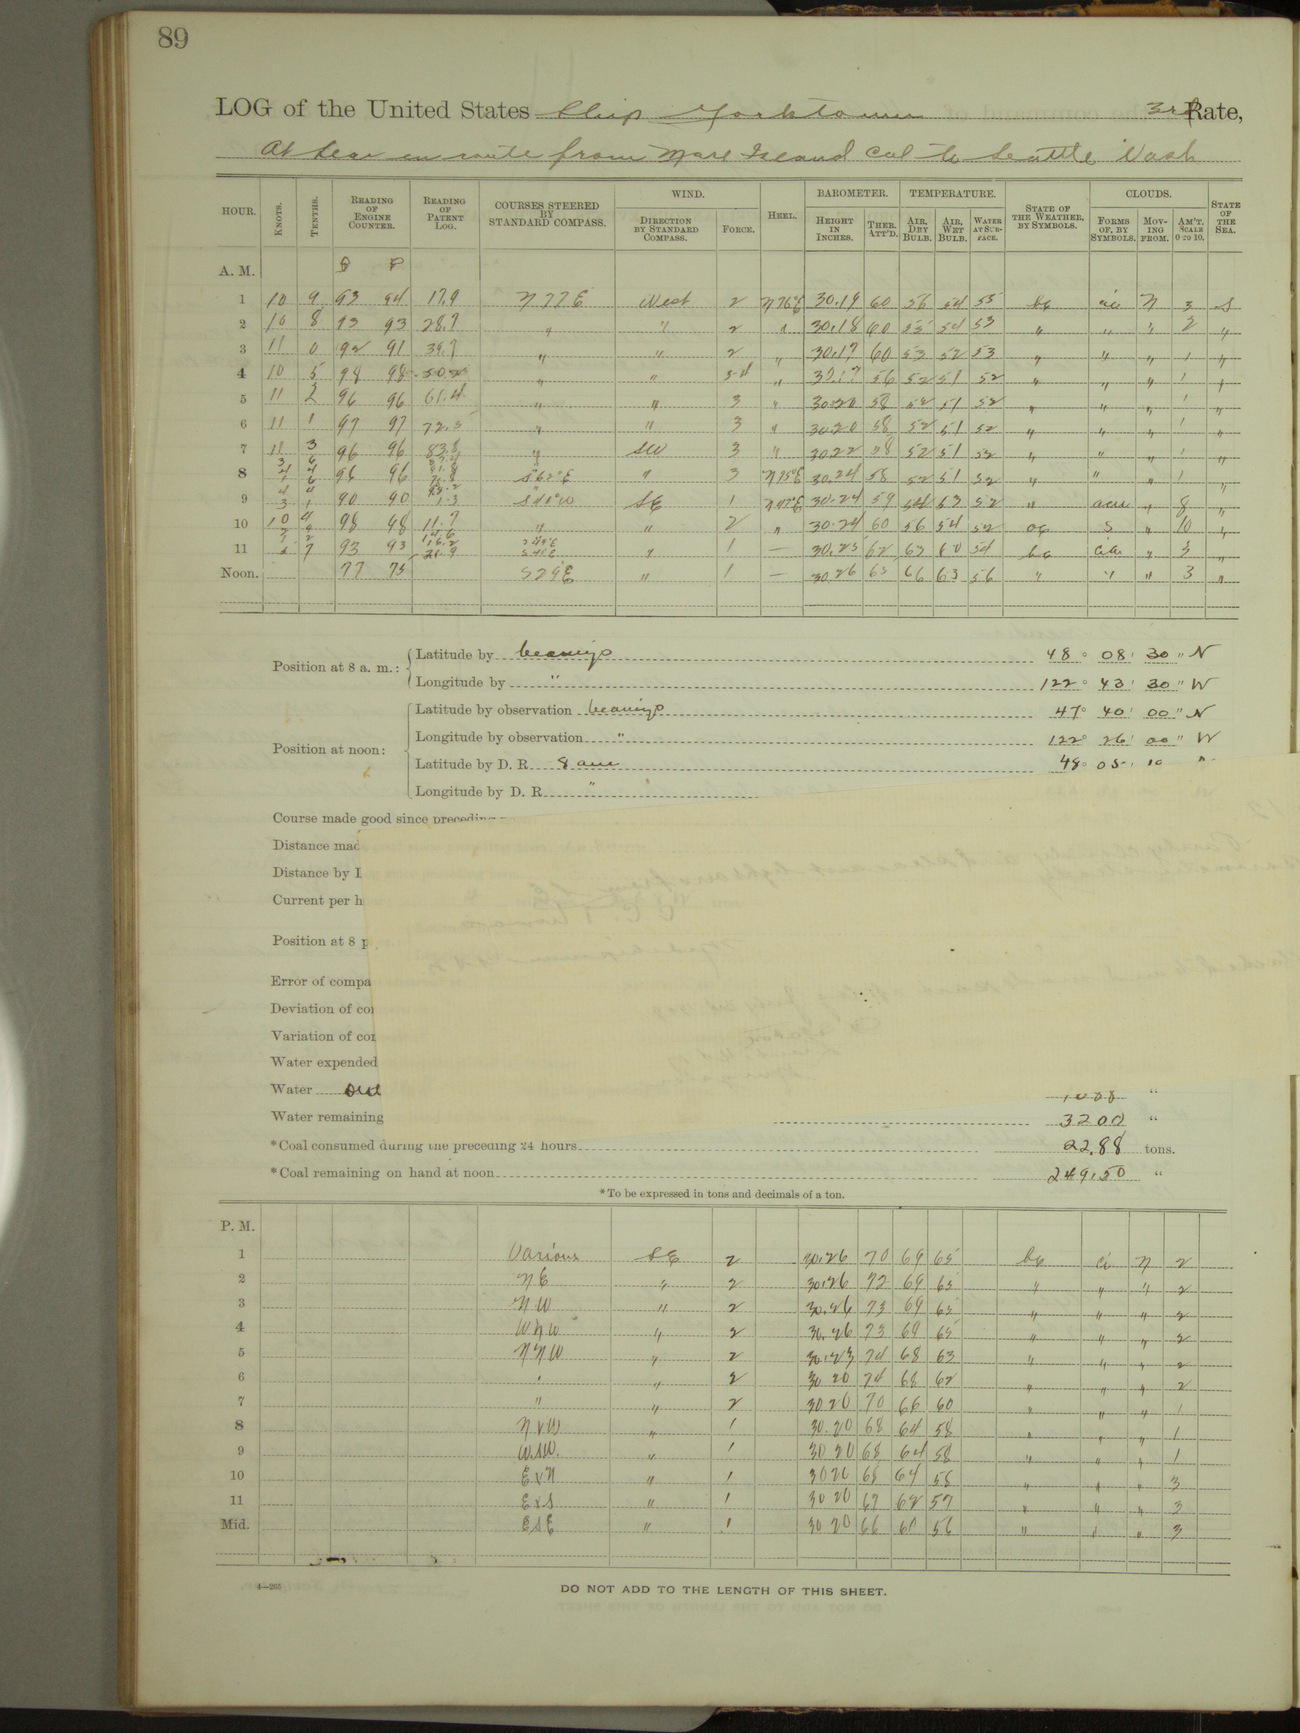 89
LOG of the United States Ship Yorktown 3rd Rate,
At Sea en route from Mare Island Cal to Seattle Wash
HOUR. KNOTS. TENTHS. READING OF ENGINE COUNTER. READING OF PATENT LOG. COURSES STEERED BY STANDARD COMPASS. WIND. DIRECTION BY STANDARD COMPASS. FORCE. HEEL. BAROMETER. HEIGHT IN INCHES. THER. ATT'D. TEMPERATURE. AIR, DRY BULB. AIR, WET BULB. WATER AT SURFACE. STATE OF THE WEATHER, BY SYMBOLS. CLOUDS. FORMS OF, BY SYMBOLS. MOVING FROM. AM'T, SCALE 0 TO 10. STATE OF THE SEA.
A. M. S P
1 10 9 93 94 17.9 N 77 E West 2 N 76 E 30.19 60 56 54 55 bc N 3 S
2 10 8 93 93 28.7 " " 2 " 30.18 60 55 54 53 " " " 2 "
3 11 0 92 91 39.7 " " 2 " 30.17 60 53 52 53 " " " 1 "
4 10 5 98 98 50.2 " " 3-4 " 30.17 56 52 51 52 " " " 1 "
5 11 2 96 96 61.4 " " 3 " 30.20 58 52 51 52 " " " 1 "
6 11 1 97 97 72.5 " " 3 " 30.20 58 52 51 52 " " " 1 "
7 11 3 96 96 83.8 " SW 3 " 30.22 58 52 51 52 " " " 1 "
8 96 96 " 3 N 75 E 30.24 58 52 51 52 " " " 1 "
9 90 90 SE 1 30.24 59 54 53 52 " " 8 "
10 98 98 11.7 " " 2 " 30.24 60 56 54 52 oc S " 10 "
11 93 93 " 1 — 30.25 62 63 60 54 bc " 3 "
Noon. 77 75 S 29 E " 1 — 30.26 65 66 63 56 " " " 3 "
Position at 8 a. m.: Latitude by bearings 48° 08' 30" N
Longitude by " 122° 43' 30" W
Position at noon: Latitude by observation bearings 47° 40' 00" N
Longitude by observation " 122° 26' 00" W
Latitude by D. R. 8 am 48° 05' 10
Longitude by D. R. "
Course made good since preceding
Distance mad
Distance by
Current per h
Position at 8 p
Error of compa
Deviation of co
Variation of co
Water expended
Water "
Water remaining 3200 "
*Coal consumed during the preceding 24 hours 22.88 tons.
*Coal remaining on hand at noon 249.50 "
*To be expressed in tons and decimals of a ton.
P. M.
1 Various SE 2 30.26 70 69 65 bc ci N 2
2 NE " 2 30.26 72 69 65 " " " 2
3 NW " 2 30.26 73 69 65 " " " 2
4 WNW " 2 30.26 73 69 65 " " " 2
5 NNW " 2 30.23 74 68 63 " " " 2
6 " " 2 30 20 74 68 62 " " " 2
7 " " 2 30 20 70 66 60 " " " 1
8 NxW " 1 30.20 68 64 58 " " " 1
9 WSW. " 1 30 20 68 64 58 " " " 1
10 ExN " 1 30 20 68 64 58 " " " 3
11 ExS " 1 30 20 67 62 57 " " " 3
Mid. ESE " 1 30 20 66 60 56 " " " 3
4—265
DO NOT ADD TO THE LENGTH OF THIS SHEET.